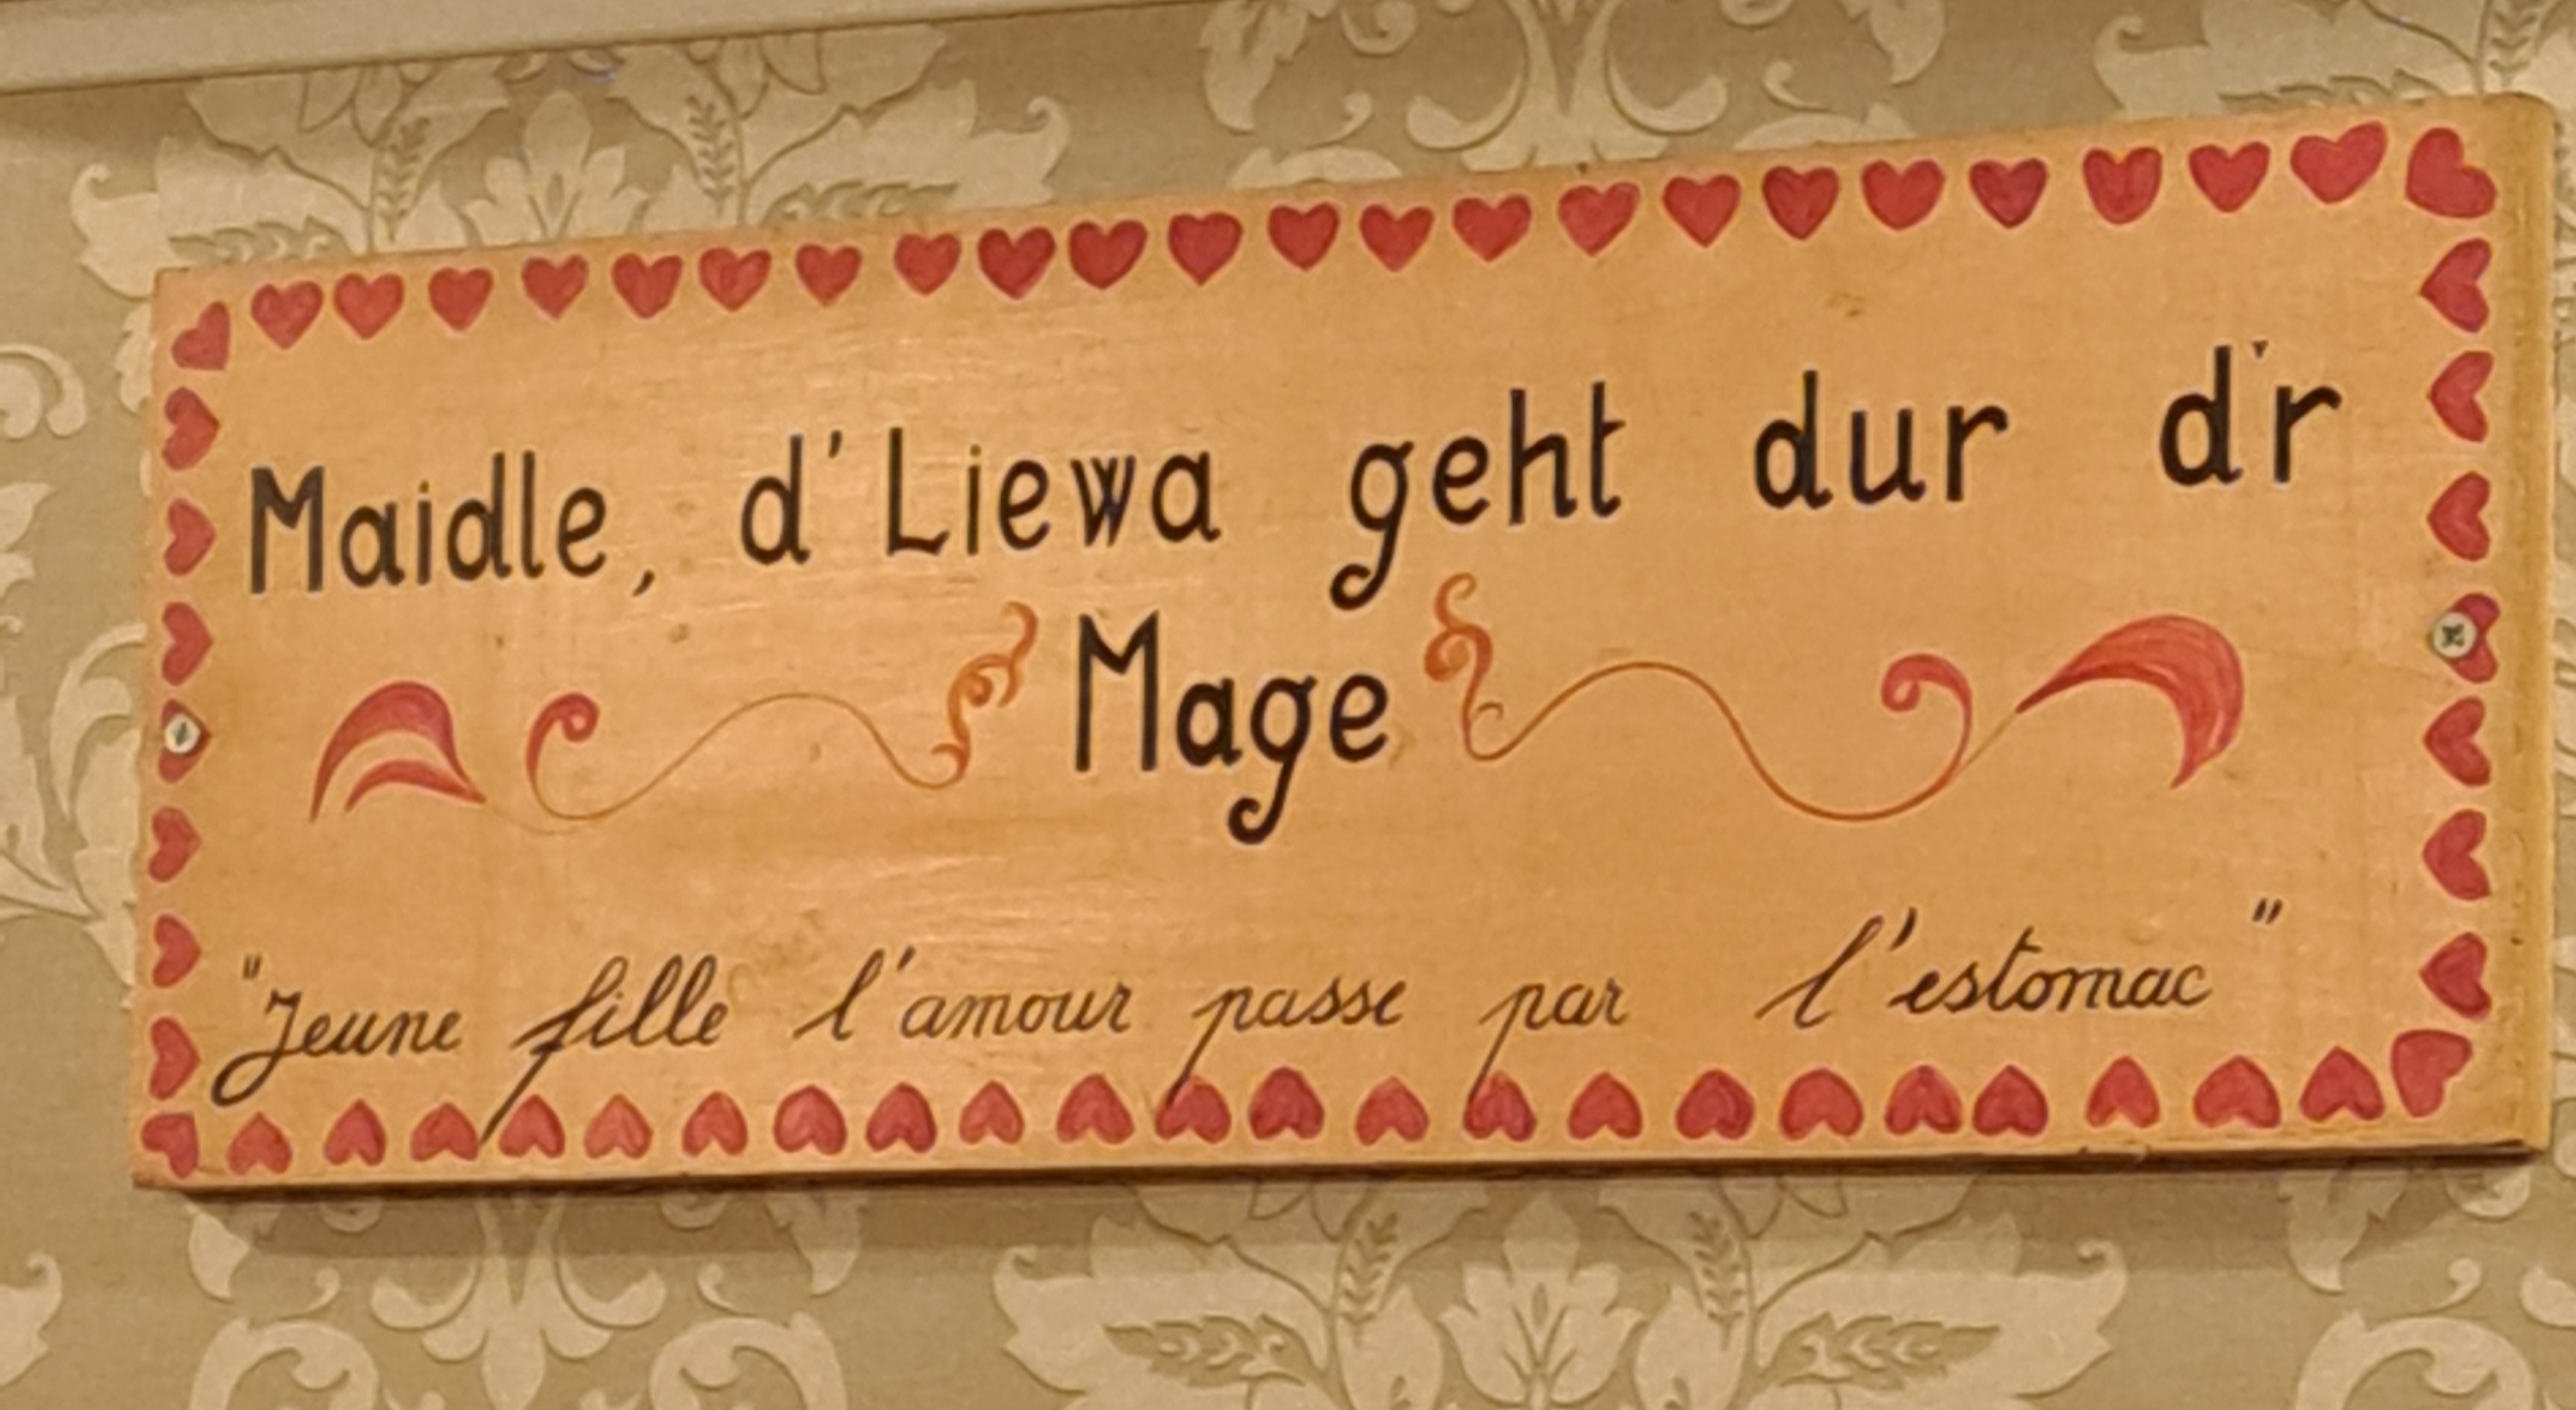 Maidle, d'Liewa geht dur d'r
Mage
"Jeune fille l'amour passe par l'estomac"